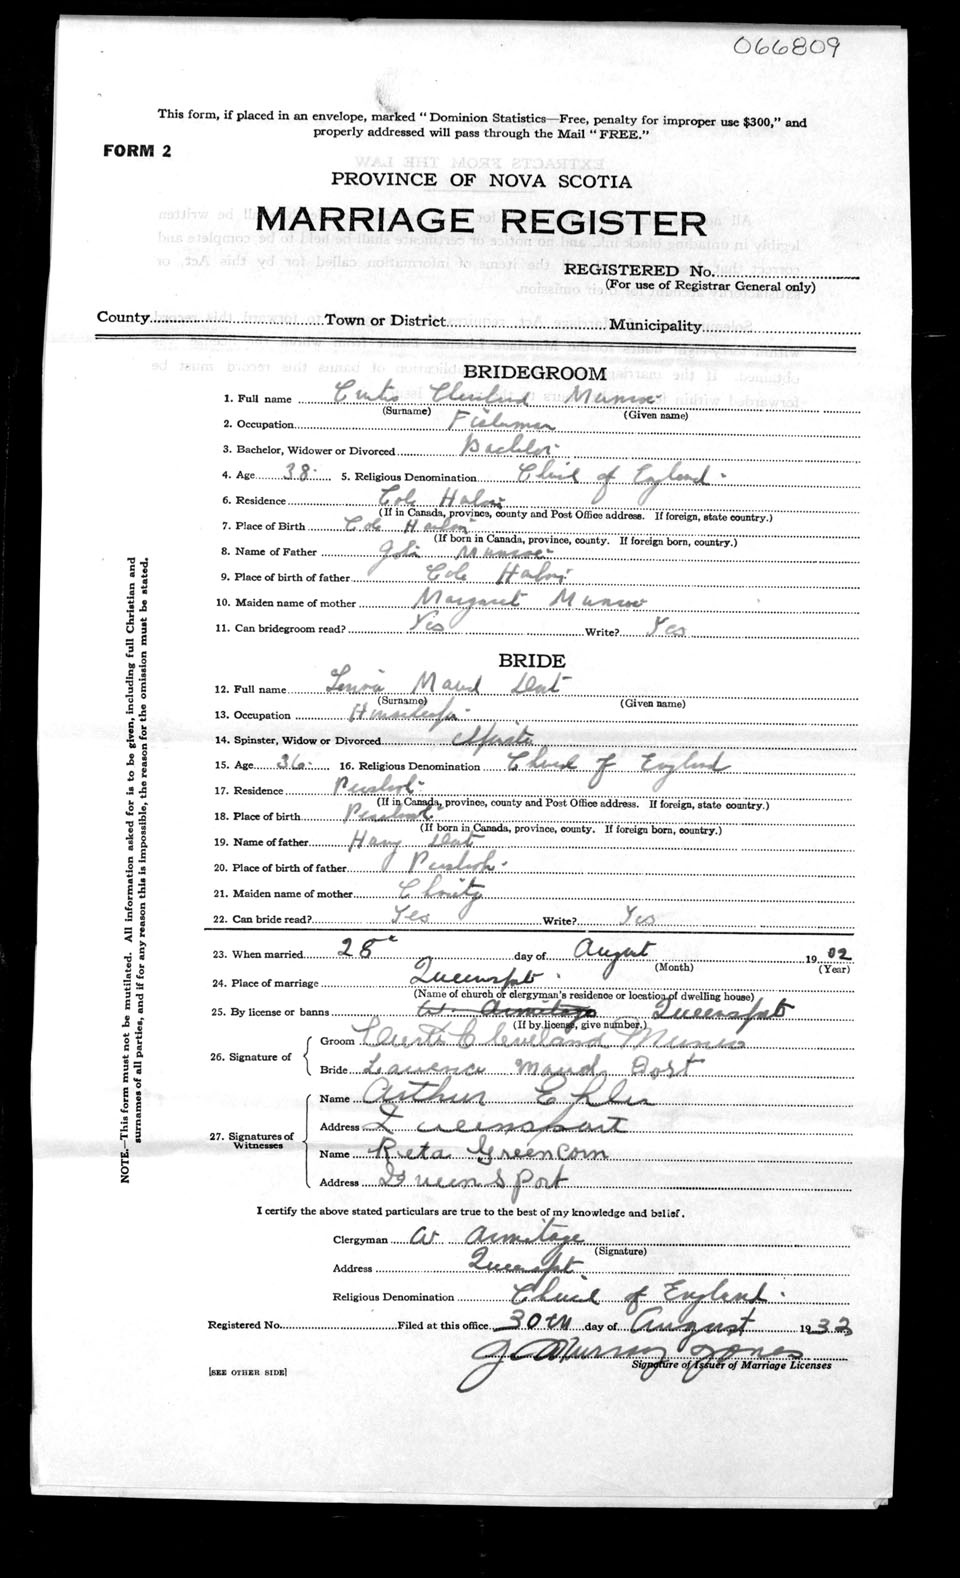 066809
This form, if placed in an envelope, marked "Dominion Statistics—Free, penalty for improper use $300," and
properly addressed will pass through the Mail "FREE."
FORM 2
PROVINCE OF NOVA SCOTIA
MARRIAGE REGISTER
REGISTERED No.
(For use of Registrar General only)
County Town or District Municipality
BRIDEGROOM
1. Full name Munroe
(Surname) (Given name)
2. Occupation Fisherman
3. Bachelor, Widower or Divorced Bachelor
4. Age 38 5. Religious Denomination of England
6. Residence Cole Harbour
(If in Canada, province, county and Post Office address. If foreign, state country.)
7. Place of Birth Cole Harbour
(If born in Canada, province, county. If foreign born, country.)
8. Name of Father John Munroe
9. Place of birth of father Cole Harbour
10. Maiden name of mother Margaret Munroe
11. Can bridegroom read? Yes Write? Yes
BRIDE
12. Full name Maud
(Surname) (Given name)
13. Occupation
14. Spinster, Widow or Divorced Spinster
15. Age 36 16. Religious Denomination of England
17. Residence
(If in Canada, province, county and Post Office address. If foreign, state country.)
18. Place of birth
(If born in Canada, province, county. If foreign born, country.)
19. Name of father Harry
20. Place of birth of father
21. Maiden name of mother
22. Can bride read? Yes Write? Yes
23. When married 28 day of August 19
(Month) (Year)
24. Place of marriage Queensport
(Name of church or clergyman's residence or location of dwelling house)
25. By license or banns W. Armitage Queensport
(If by license, give number.)
26. Signature of
Groom Cleveland Munroe
Bride Maud
27. Signatures of
Witnesses
Name Arthur
Address
Name Reta Greencorn
Address Queensport
I certify the above stated particulars are true to the best of my knowledge and belief.
Clergyman W Armitage
(Signature)
Address Queensport
Religious Denomination of England
Registered No. Filed at this office 30th day of August 1932
J. Murray Jones
Signature of Issuer of Marriage Licenses
[SEE OTHER SIDE]
NOTE.—This form must not be mutilated. All information asked for is to be given, including full Christian and
surnames of all parties, and if for any reason this is impossible, the reason for the omission must be stated.